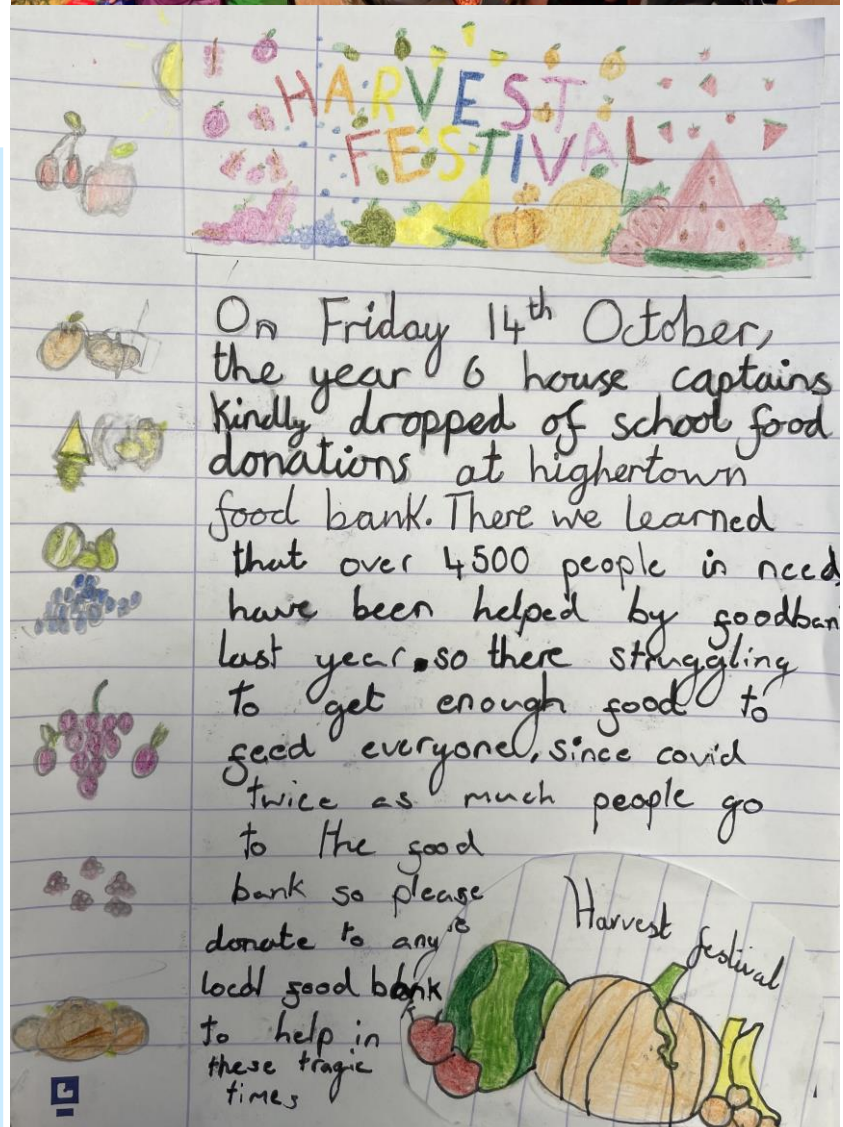 HARVEST
FESTIVAL
On Friday 14th October,
the year 6 house captains
kindly dropped of school food
donations at highertown
food bank. There we learned
that over 4500 people in need
have been helped by foodban
last year. so there struggling
to get enough food to
feed everyone, since covid
twice as much people go
to the food
bank so please
donate to any
local food bank
to help in
these tragic
times
Harvest
festival